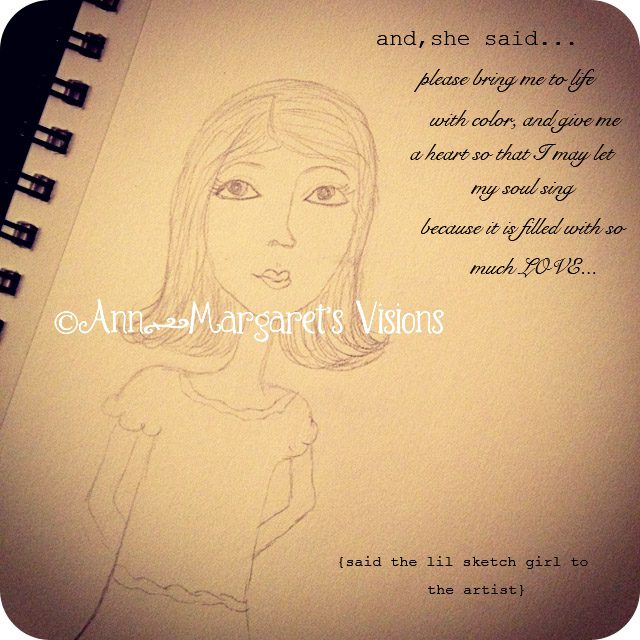 and,she said...
please bring me to life
with color, and give me
a heart so that I may let
my soul sing
because it is filled with so
much LOVE...
©Ann-Margaret's Visions
{said the lil sketch girl to
the artist}